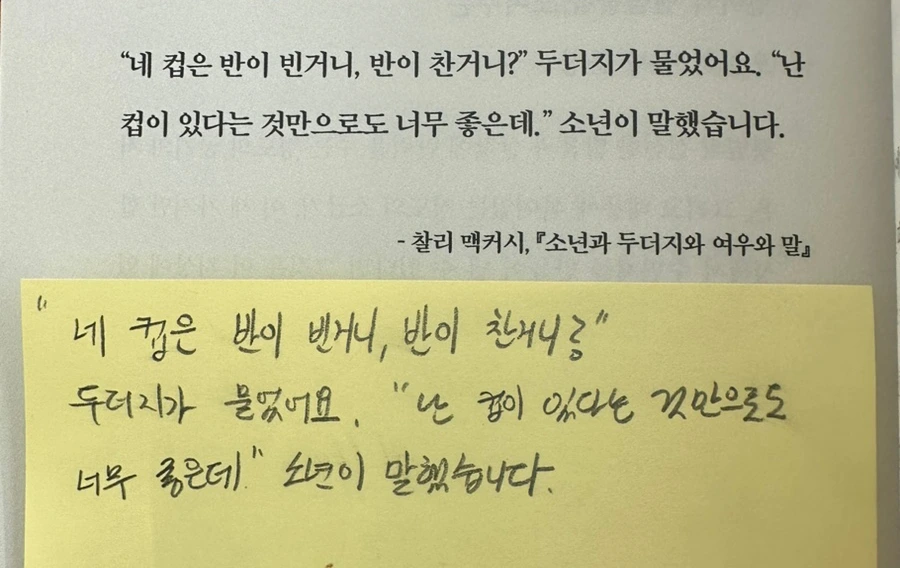 “네 컵은 반이 빈거니, 반이 찬거니?” 두더지가 물었어요. “난
컵이 있다는 것만으로도 너무 좋은데.” 소년이 말했습니다.
- 찰리 맥커시, 『소년과 두더지와 여우와 말』
"네 컵은 반이 빈거니, 반이 찬거니?"
두더지가 물었어요. "난 컵이 있다는 것만으로도
너무 좋은데." 소년이 말했습니다.